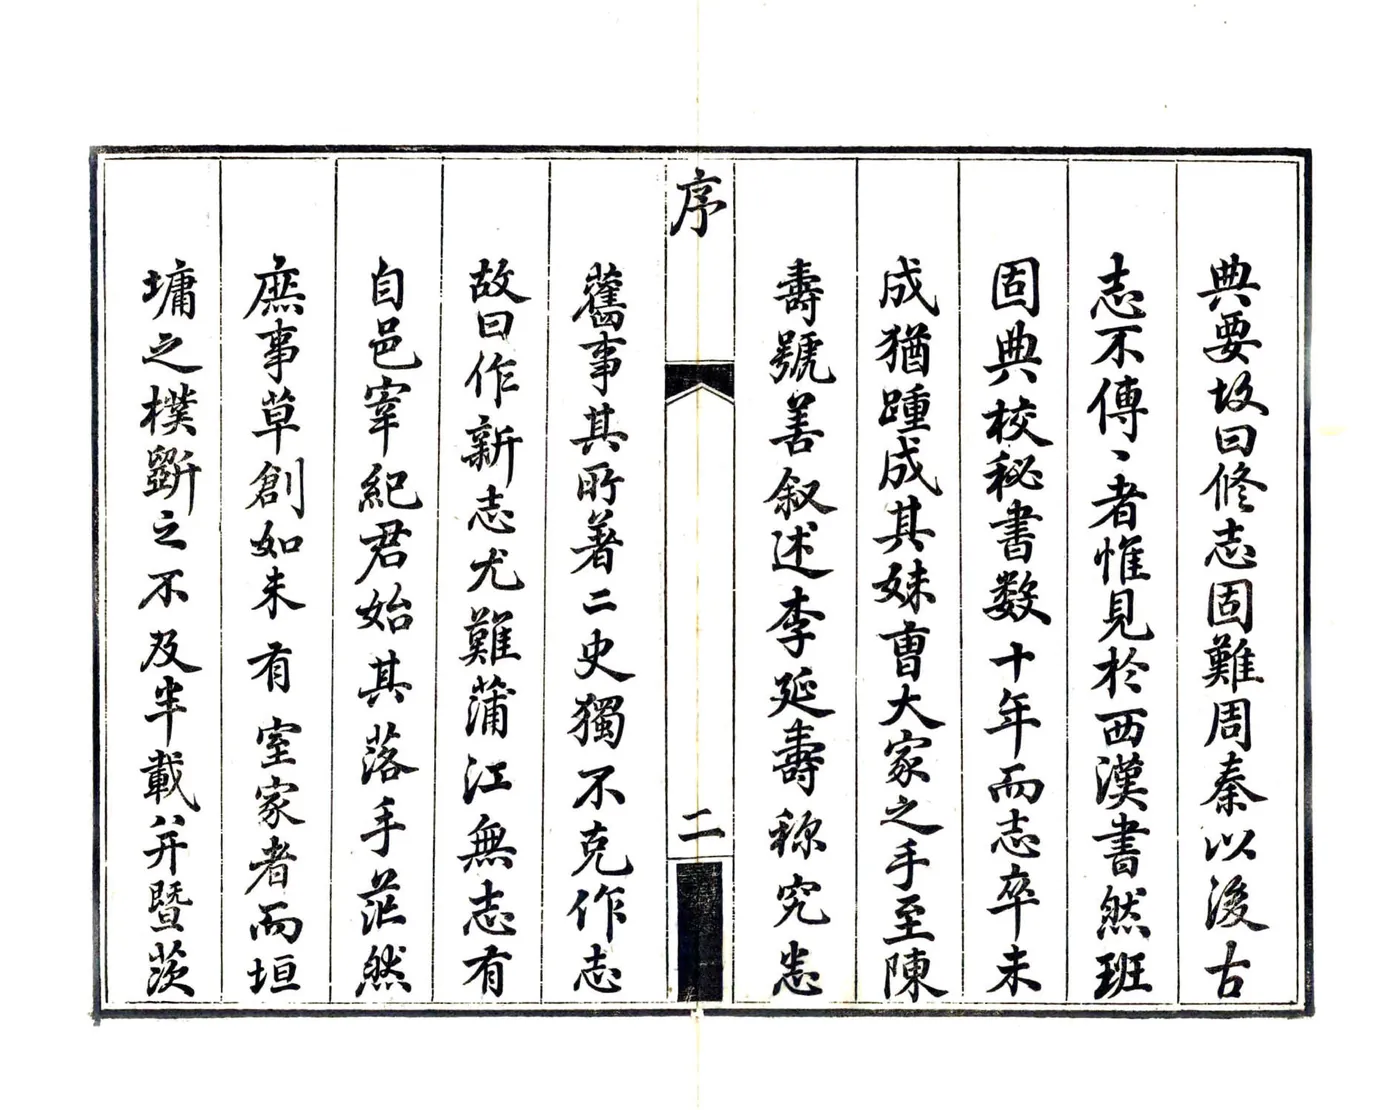 典要故曰修志固難周秦以後古
志不傳〻者惟見於西漢書然班
固典校秘書数十年而志卒未
成猶踵成其妹曹大家之手至陳
壽號善叙述李延壽称究悉
序
二
舊事其所著二史獨不克作志
故曰作新志尤難蒲江無志有
自邑宰紀君始其落手茫然
庶事草創如未有室家者而垣
墉之樸斲之不及半載并暨茨